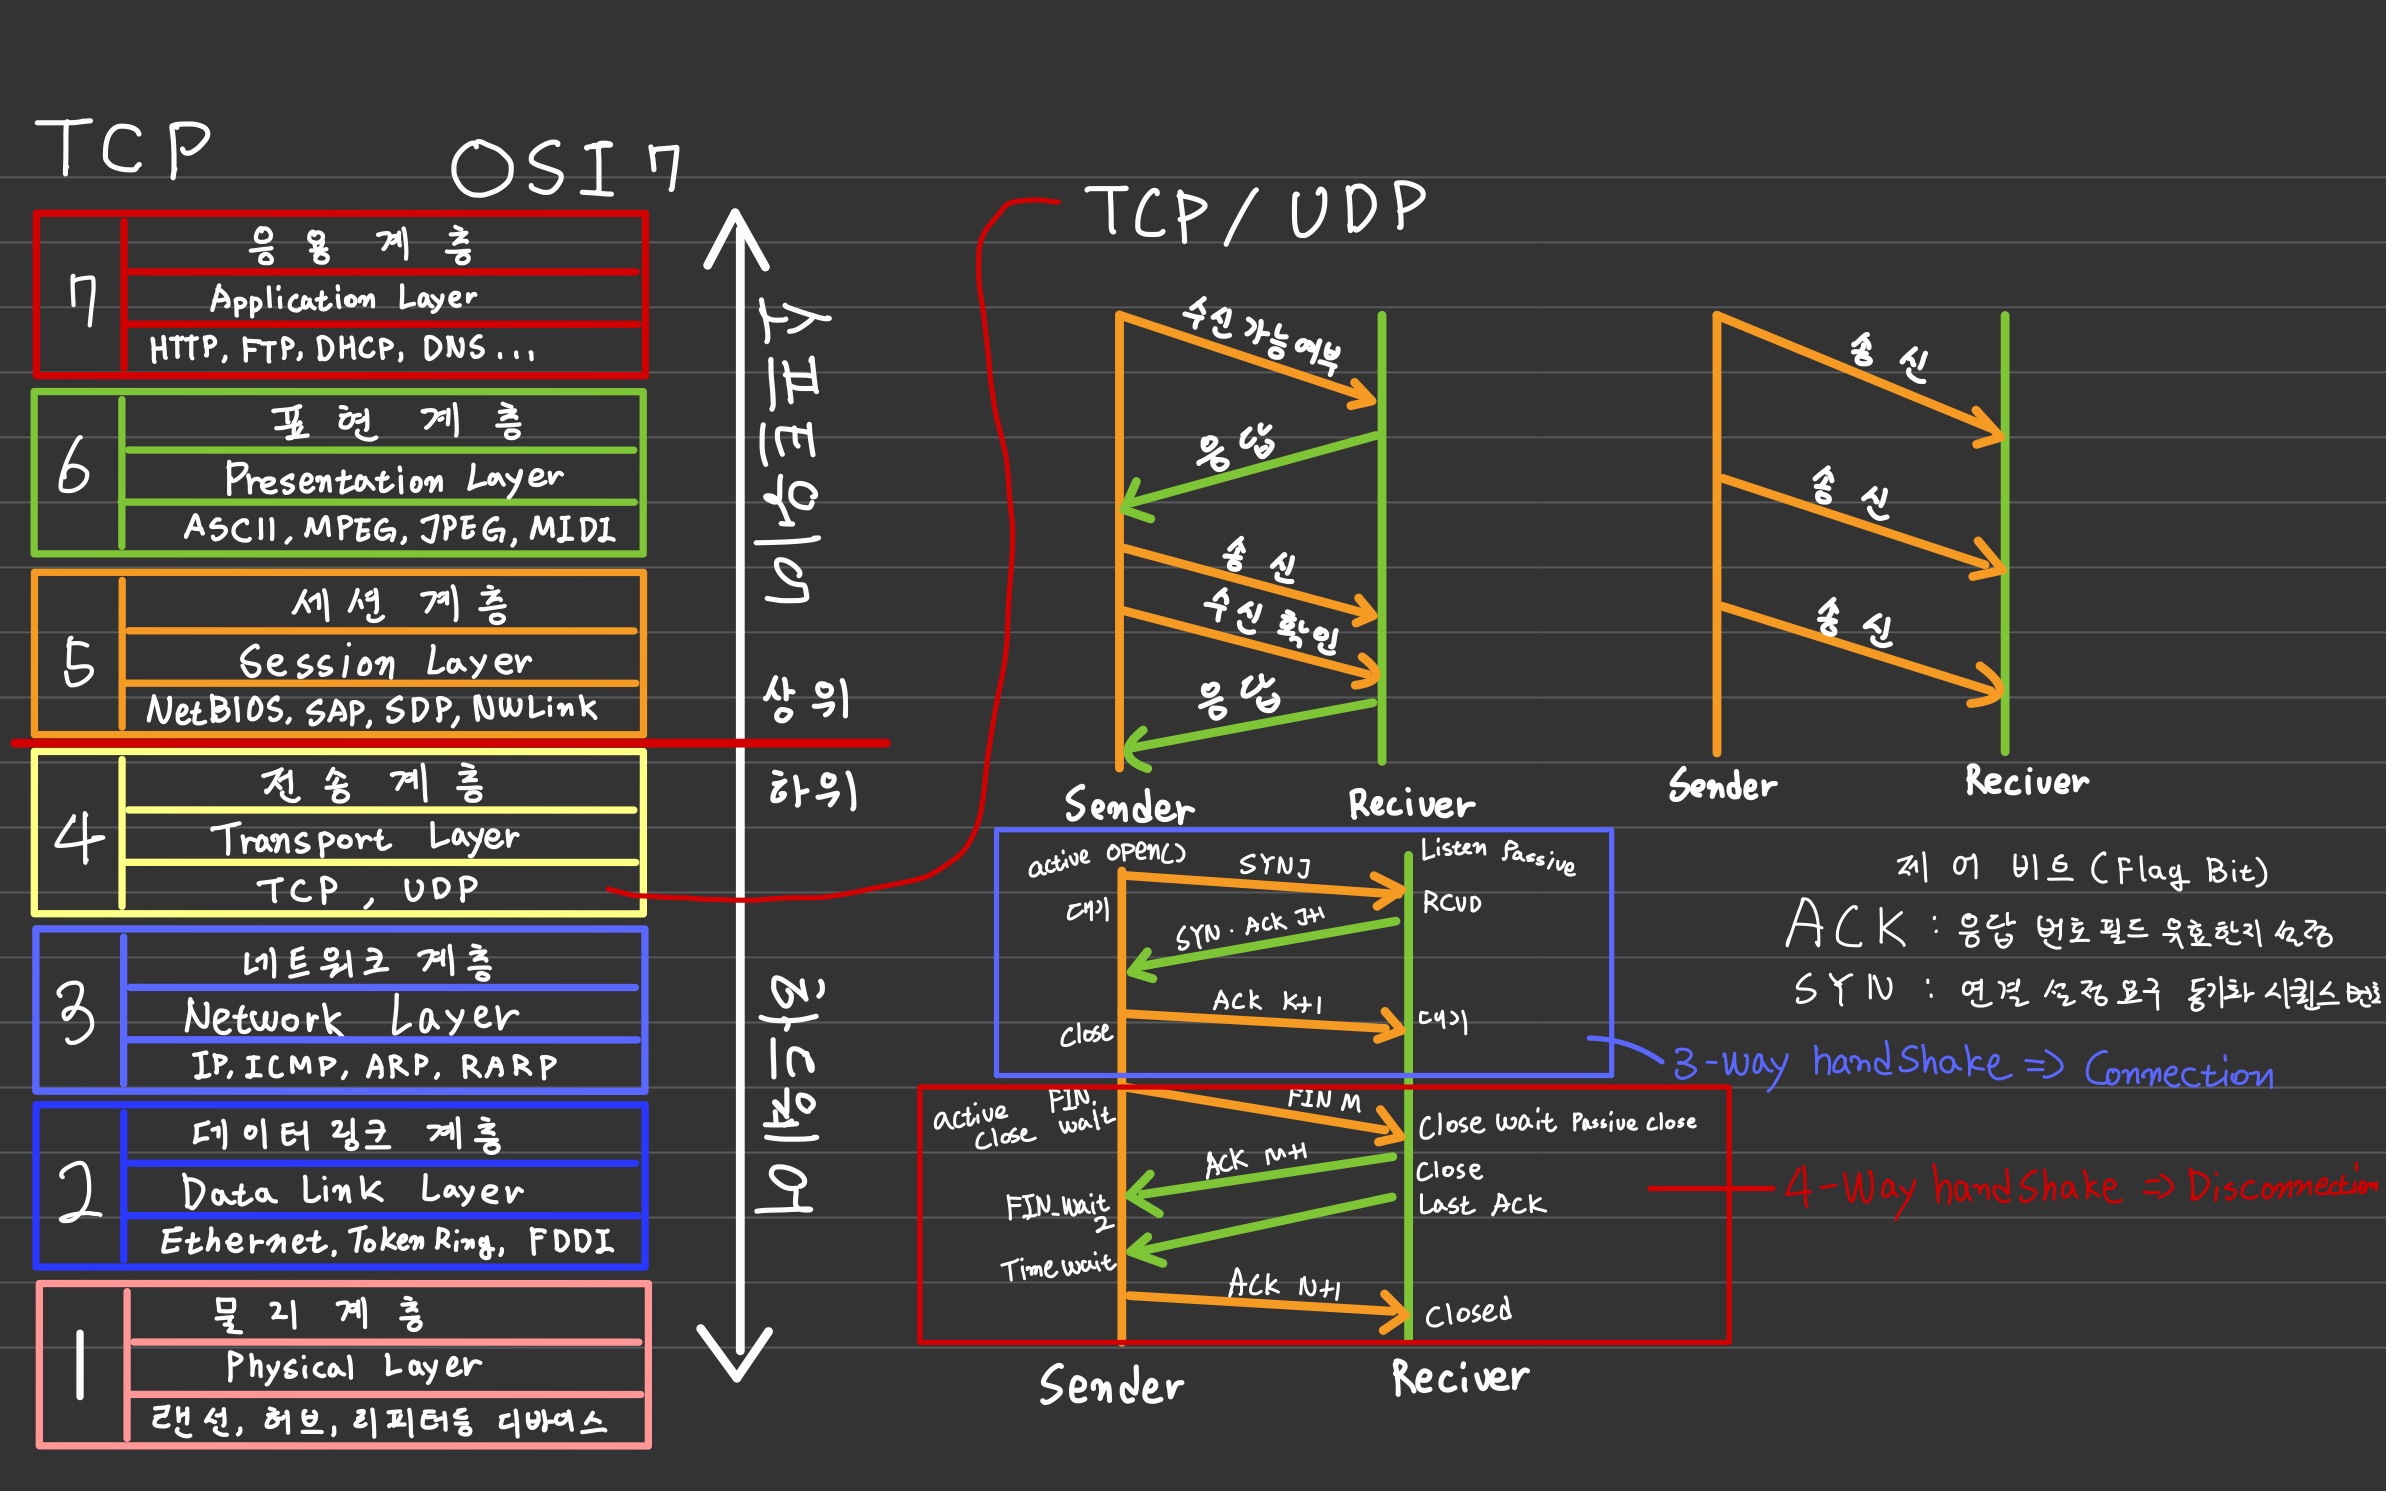 TCP
OSI 7
7
응용 계층
Application Layer
HTTP, FTP, DHCP, DNS ...
6
표현 계층
Presentation Layer
ASCII, MPEG, JPEG, MIDI
5
세션 계층
Session Layer
NetBIOS, SAP, SDP, NWLink
4
전송 계층
Transport Layer
TCP, UDP
3
네트워크 계층
Network Layer
IP, ICMP, ARP, RARP
2
데이터링크 계층
Data Link Layer
Ethernet, Token Ring, FDDI
1
물리 계층
Physical Layer
랜선, 허브, 리피터등 디바이스
소프트웨어
상위
하위
하드웨어
TCP/UDP
수신 가능여부
응답
송신
수신 확인
응답
Sender
Reciver
송신
송신
송신
Sender
Reciver
active open()
SYN J
Listen Passive
대기
RCVD
SYN. ACK J+1
ACK K+1
Close
대기
제어 비트 (Flag Bit)
ACK : 응답 번호 필드 유효한지 설정
SYN : 연결 설정 요구 동기화 시퀀스 번호
3-way handshake => Connection
active close
FIN. wait
FIN M
Close wait Passive close
ACK M+1
Close
FIN_wait 2
Last ACK
Time wait
ACK N+1
Closed
4-way handshake => Disconnection
Sender
Reciver